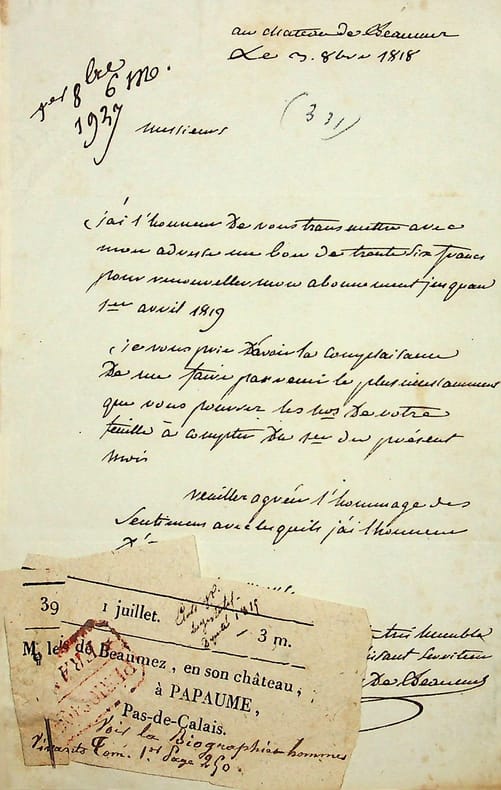 au chateau de Beaumez
Le 3. 8bre 1818
per 8bre 6 m.
1937
(331)
Messieurs
j'ai l'honneur De vous transmettre avec
mon adresse un bon de trente six francs
pour renouveller mon abonnement jusquau
1er avril 1819
Je vous prie D'avoir la complaisance
De me faire parvenir le plus incessamment
que vous pourrez les nos De votre
feuille à compter Du 1er du présent
mois
veuillez agréer l'hommage des
Sentimens avec lesquels j'ai l'honneur
D'
tres humble
obeissant Serviteur
De Beaumez
39 1 juillet. 3 m.
M. le de Beaumez, en son château,
à PAPAUME,
Pas-de-Calais.
Voir la Biographie hommes
vivants Tom. 1er Page 250.